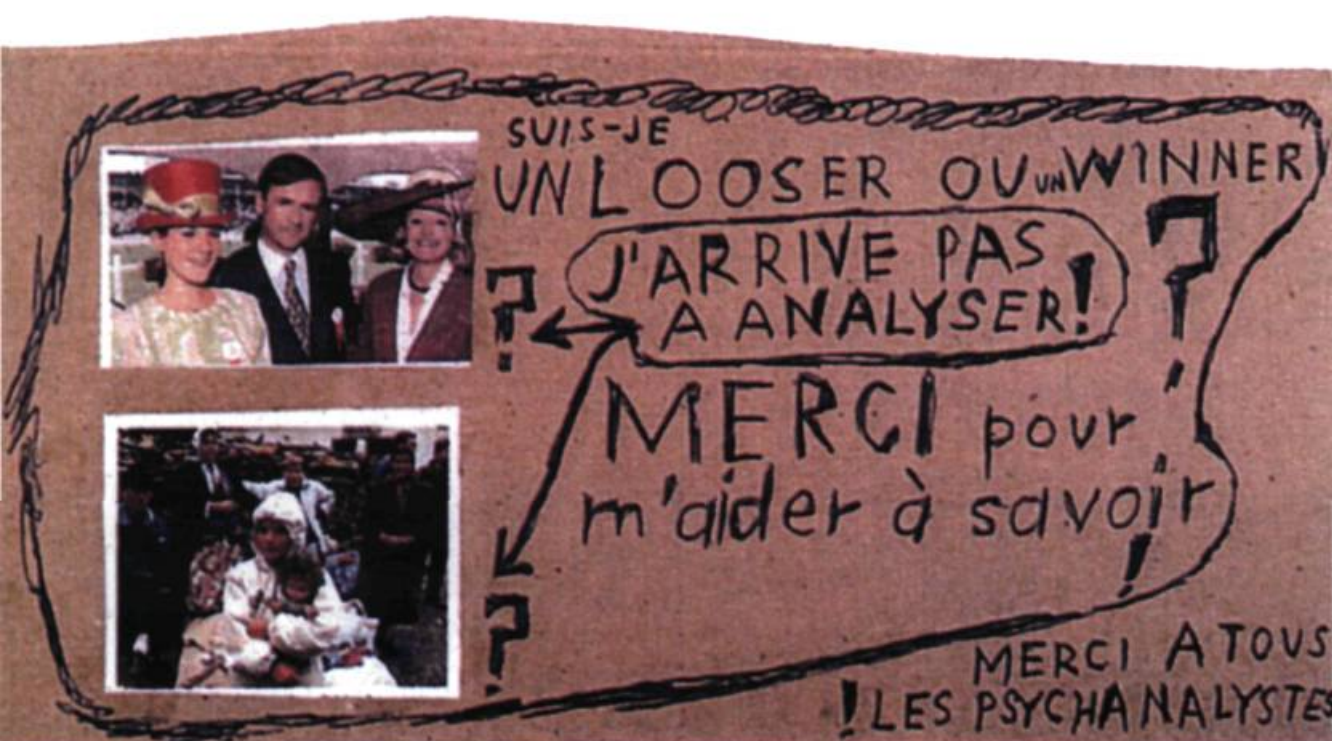 SUIS-JE
UN LOOSER OU UN WINNER
?
J'ARRIVE PAS
A ANALYSER!
?
MERCI pour
m'aider à savoir
!
?
MERCI A TOUS
! LES PSYCHANALYSTES